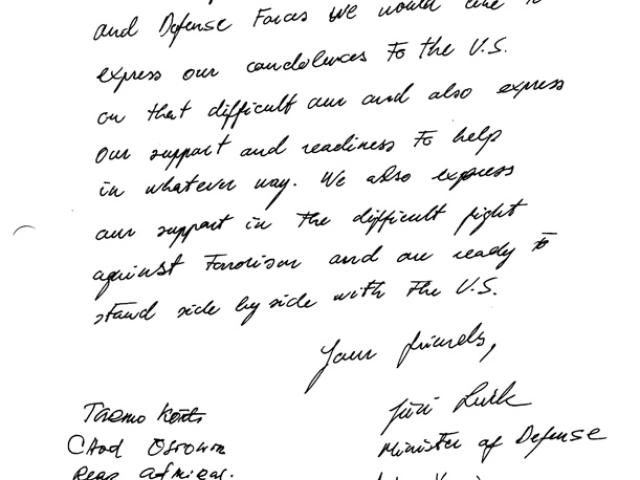 and Defense Forces we would like to
express our candolences to the U.S.
on that difficult our and also express
our support and readiness to help
in whatever way. We also express
our support in the difficult fight
against Terrorism and are ready to
stand side by side with the U.S.
Your friends,
Tarmo Kõuts
CHOD
Rear Admiral.
Jüri Luik
Minister of Defense